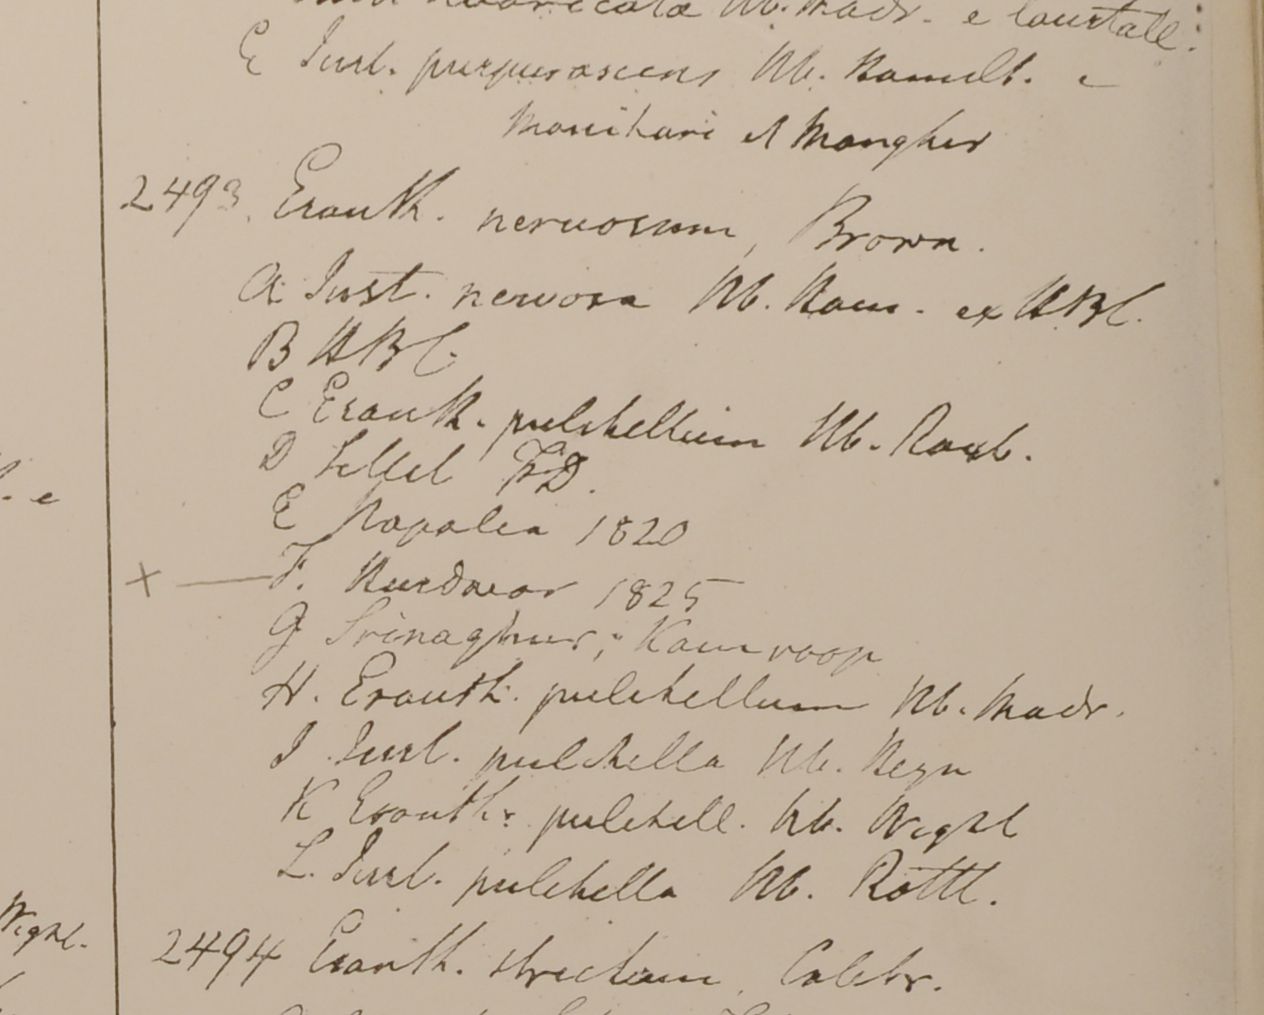 Hb. Madr. e
E Just. purpurascens Hb. Hamilt. e
Monihari et Mongher
2493. Eranth. nervosum, Brown.
A Just. nervosa Hb. Ham. ex HBC.
B HBC.
C Eranth. pulchellum Hb. Roxb.
D Sillet FD.
E Napalia 1820
x — F. Hurdwar 1825
G Srinaghur; Kamroop
H. Eranth. pulchellum Hb. Madr.
I Just. pulchella Hb. Heyn
K Eranth. pulchell. Hb. Wight
L. Just. pulchella Hb. Rottl.
2494 Eranth. strictum, Colebr.
. e
Wight.